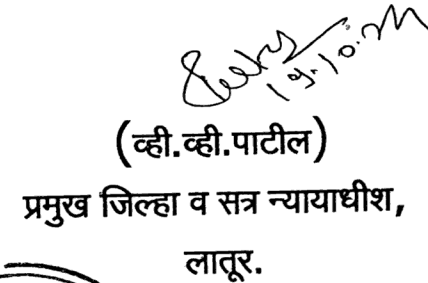 (व्ही.व्ही.पाटील)
प्रमुख जिल्हा व सत्र न्यायाधीश,
लातूर.